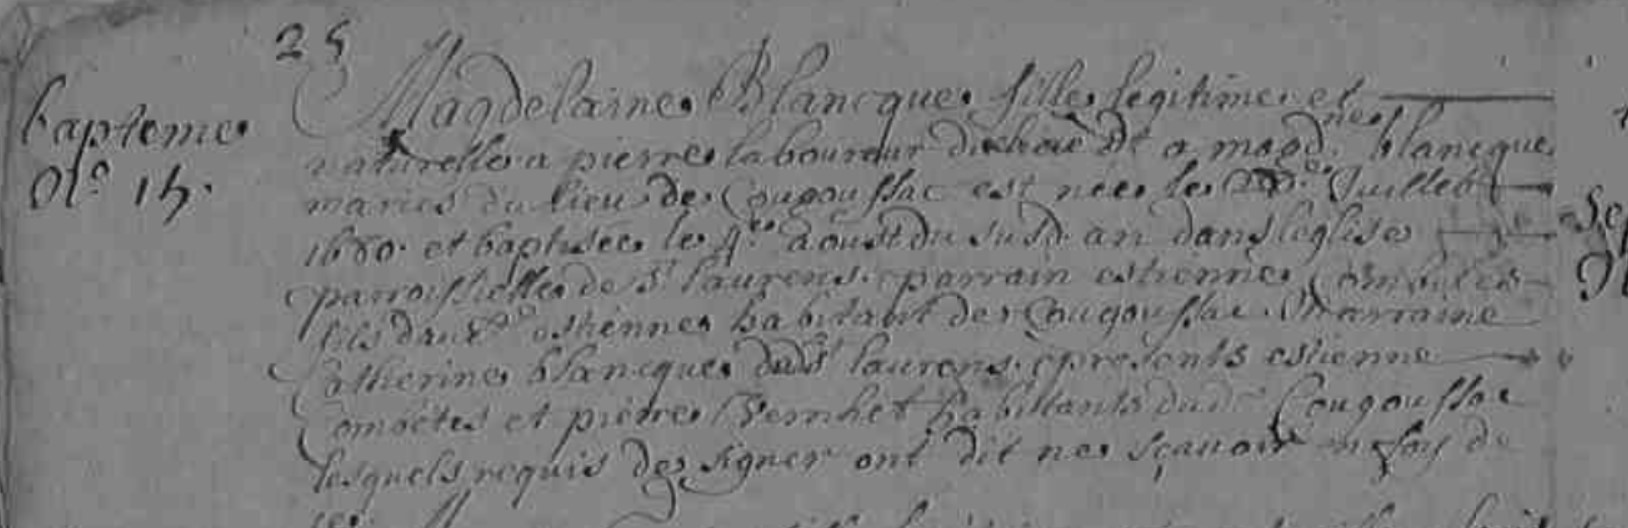 25
bapteme
N.° 15.
Magdelaine Blancque fille legitime et
naturelle a pierre laboureur dt a magd.ne blancque
maries du lieu de Cougoussac est née le Juillet
1680. et baptisée le 4.e aoust du susd. an dans leglise
parroissielle de St laurens. parrain estienne Comoites
fils dau estienne habitant de Cougoussac. Marraine
Catherine blancque dud St laurens. presents estienne
Comoites et pierre Vernhet habittants dud Cougoussac
lesquels requis de signer ont dit ne sçauoir en foy de